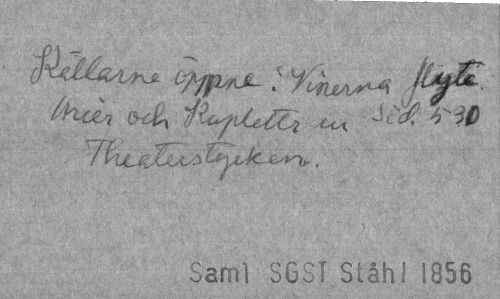 Källarne öppne! Vinerna flyte.
Arier och Kupletter ur Sid. 530
Theaterstycken.
Saml SGST Ståhl 1856